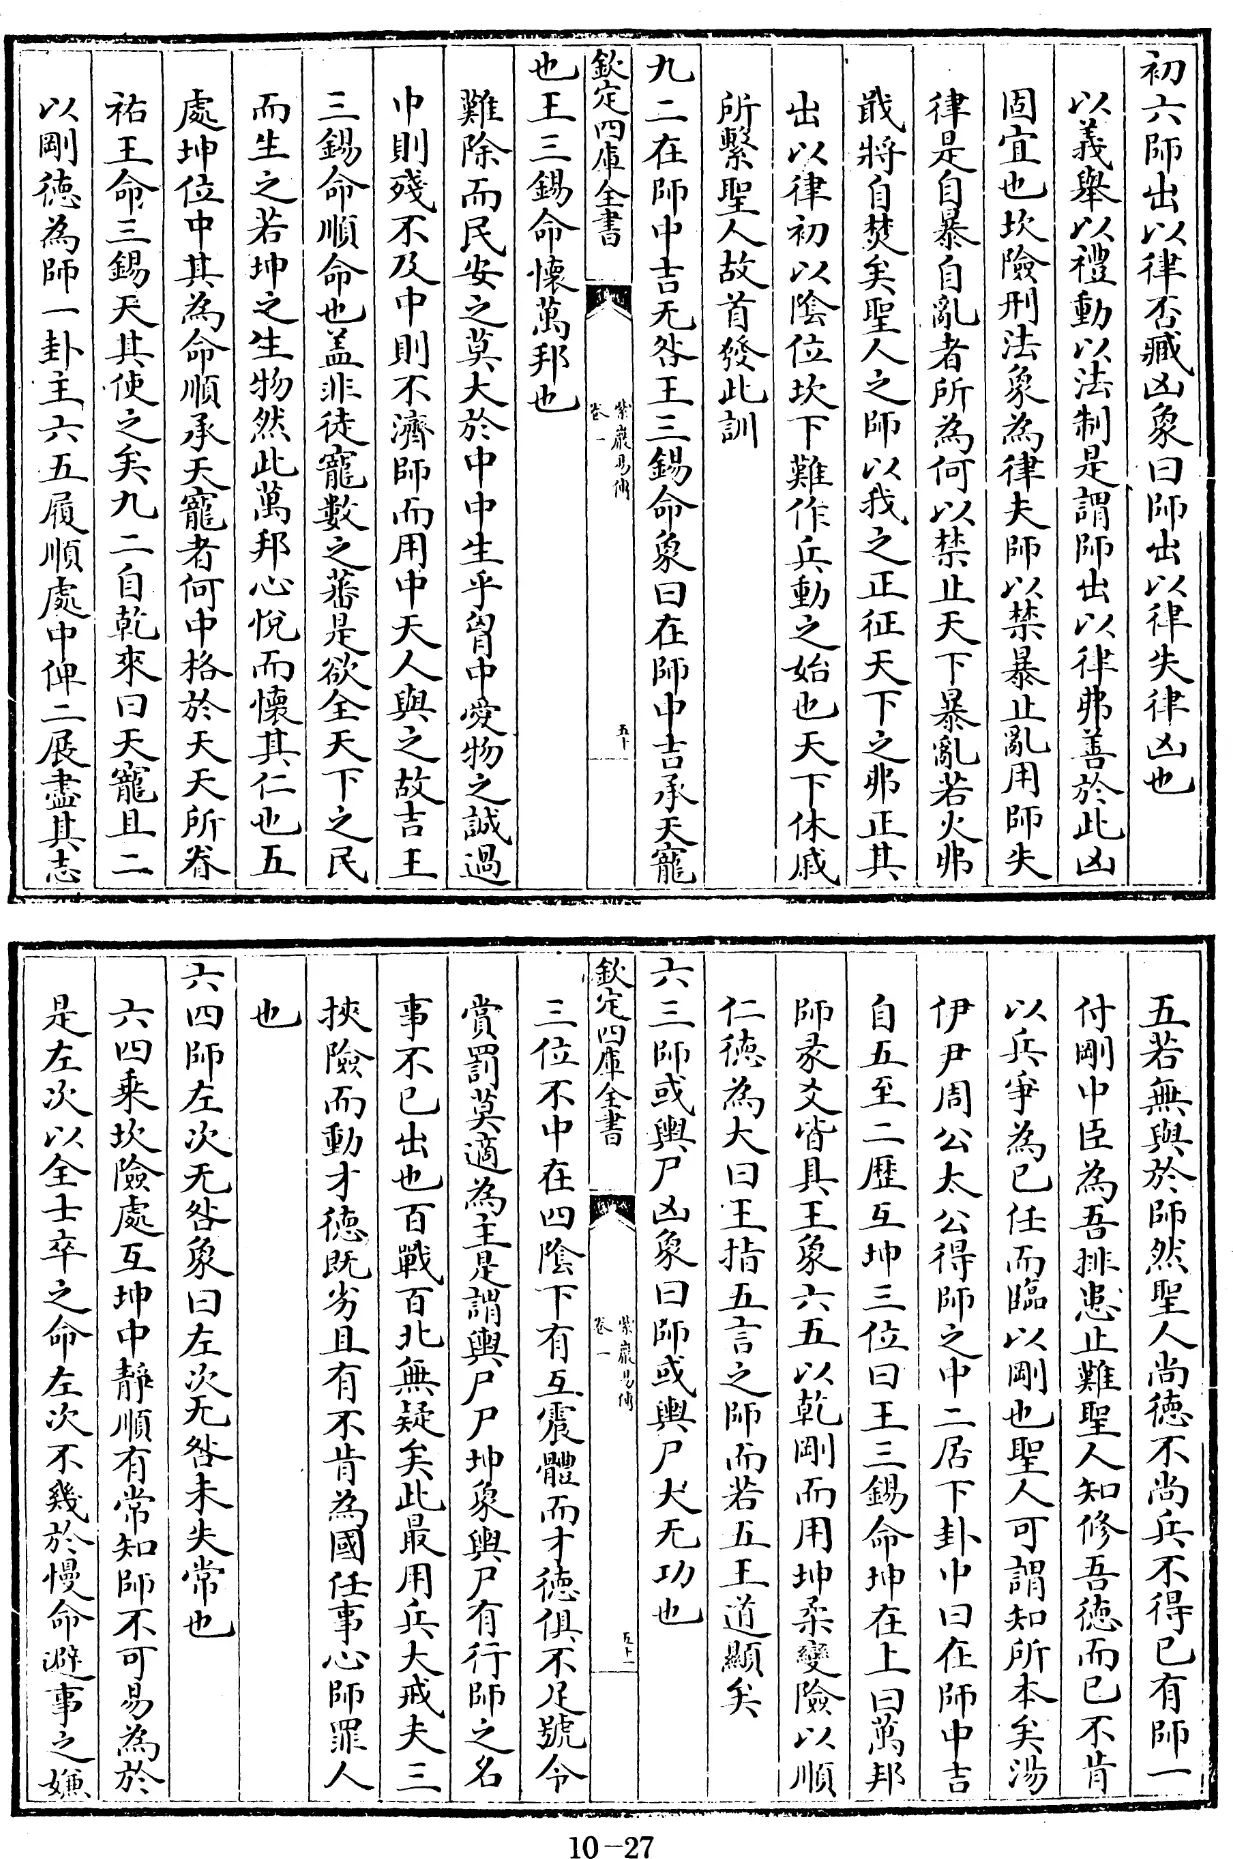 初六師出以律否臧凶象曰師出以律失律凶也
以義舉以禮動以法制是謂師出以律弗善於此凶
固宜也坎險刑法象為律夫師以禁暴止亂用師失
律是自暴自亂者所為何以禁止天下暴亂若火弗
戢將自焚矣聖人之師以我之正征天下之弗正其
出以律初以陰位坎下難作兵動之始也天下休戚
所繫聖人故首發此訓
九二在師中吉无咎王三錫命象曰在師中吉承天寵
欽定四庫全書
紫巖易傳
卷一
五十
也王三錫命懷萬邦也
難除而民安之莫大於中中生乎胷中愛物之誠過
中則殘不及中則不濟師而用中天人與之故吉王
三錫命順命也盖非徒寵數之蕃是欲全天下之民
而生之若坤之生物然此萬邦心悅而懷其仁也五
處坤位中其為命順承天寵者何中格於天天所眷
祐王命三錫天其使之矣九二自乾來曰天寵且二
以剛德為師一卦主六五履順處中俾二展盡其志
五若無與於師然聖人尚德不尚兵不得已有師一
付剛中臣為吾排患止難聖人知修吾德而已不肯
以兵爭為已任而臨以剛也聖人可謂知所本矣湯
伊尹周公太公得師之中二居下卦中曰在師中吉
自五至二歷互坤三位曰王三錫命坤在上曰萬邦
師彖爻皆具王象六五以乾剛而用坤柔變險以順
仁德為大曰王指五言之師而若五王道顯矣
六三師或輿尸凶象曰師或輿尸大无功也
欽定四庫全書
紫巖易傳
卷一
五十一
三位不中在四陰下有互震體而才德俱不足號令
賞罰莫適為主是謂輿尸尸坤象輿尸有行師之名
事不已出也百戰百北無疑矣此最用兵大戒夫三
挾險而動才德既劣且有不肯為國任事心師罪人
也
六四師左次无咎象曰左次无咎未失常也
六四乘坎險處互坤中靜順有常知師不可易為於
是左次以全士卒之命左次不幾於慢命避事之嫌
10-27